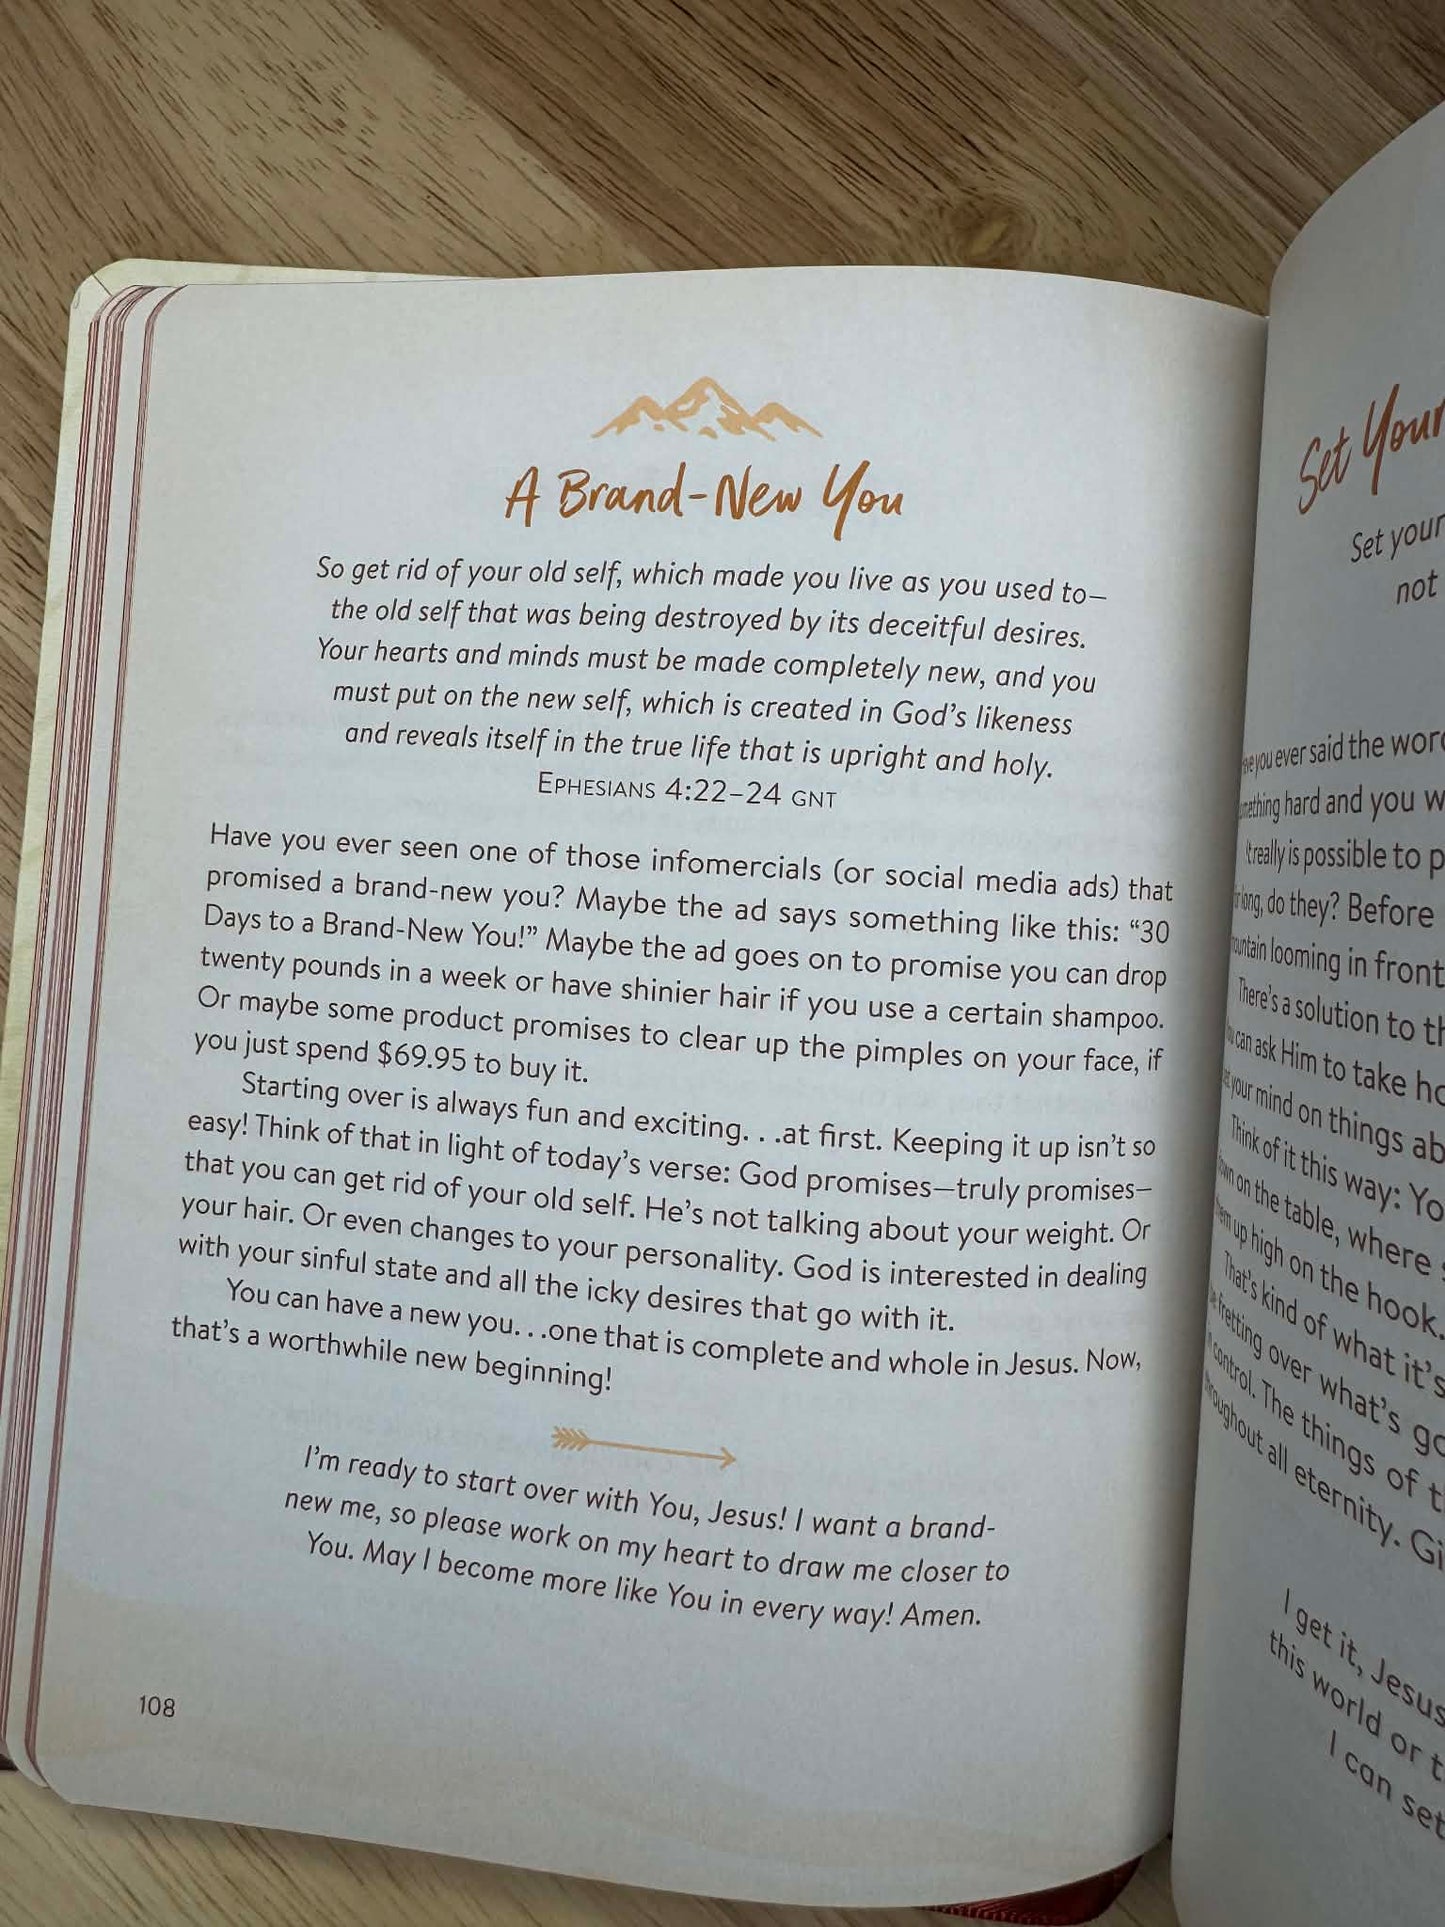 A Brand-New You
So get rid of your old self, which made you live as you used to—
the old self that was being destroyed by its deceitful desires.
Your hearts and minds must be made completely new, and you
must put on the new self, which is created in God's likeness
and reveals itself in the true life that is upright and holy.
EPHESIANS 4:22–24 GNT
Have you ever seen one of those infomercials (or social media ads) that
promised a brand-new you? Maybe the ad says something like this: “30
Days to a Brand-New You!” Maybe the ad goes on to promise you can drop
twenty pounds in a week or have shinier hair if you use a certain shampoo.
Or maybe some product promises to clear up the pimples on your face, if
you just spend $69.95 to buy it.
Starting over is always fun and exciting. . .at first. Keeping it up isn't so
easy! Think of that in light of today's verse: God promises—truly promises—
that you can get rid of your old self. He's not talking about your weight. Or
your hair. Or even changes to your personality. God is interested in dealing
with your sinful state and all the icky desires that go with it.
You can have a new you. . .one that is complete and whole in Jesus. Now,
that's a worthwhile new beginning!
I'm ready to start over with You, Jesus! I want a brand-
new me, so please work on my heart to draw me closer to
You. May I become more like You in every way! Amen.
108
Set Your
Set your
not
you ever said the
hard and you
really is possible to
long, do they? Before
looming in front
There's a solution to
can ask Him to take
your mind on things
Think of it this way:
on the table, where
up high on the hook.
That's kind of what it's
fretting over what's
control. The things of
throughout all eternity.
I get it, Jesus
this world or
I can set